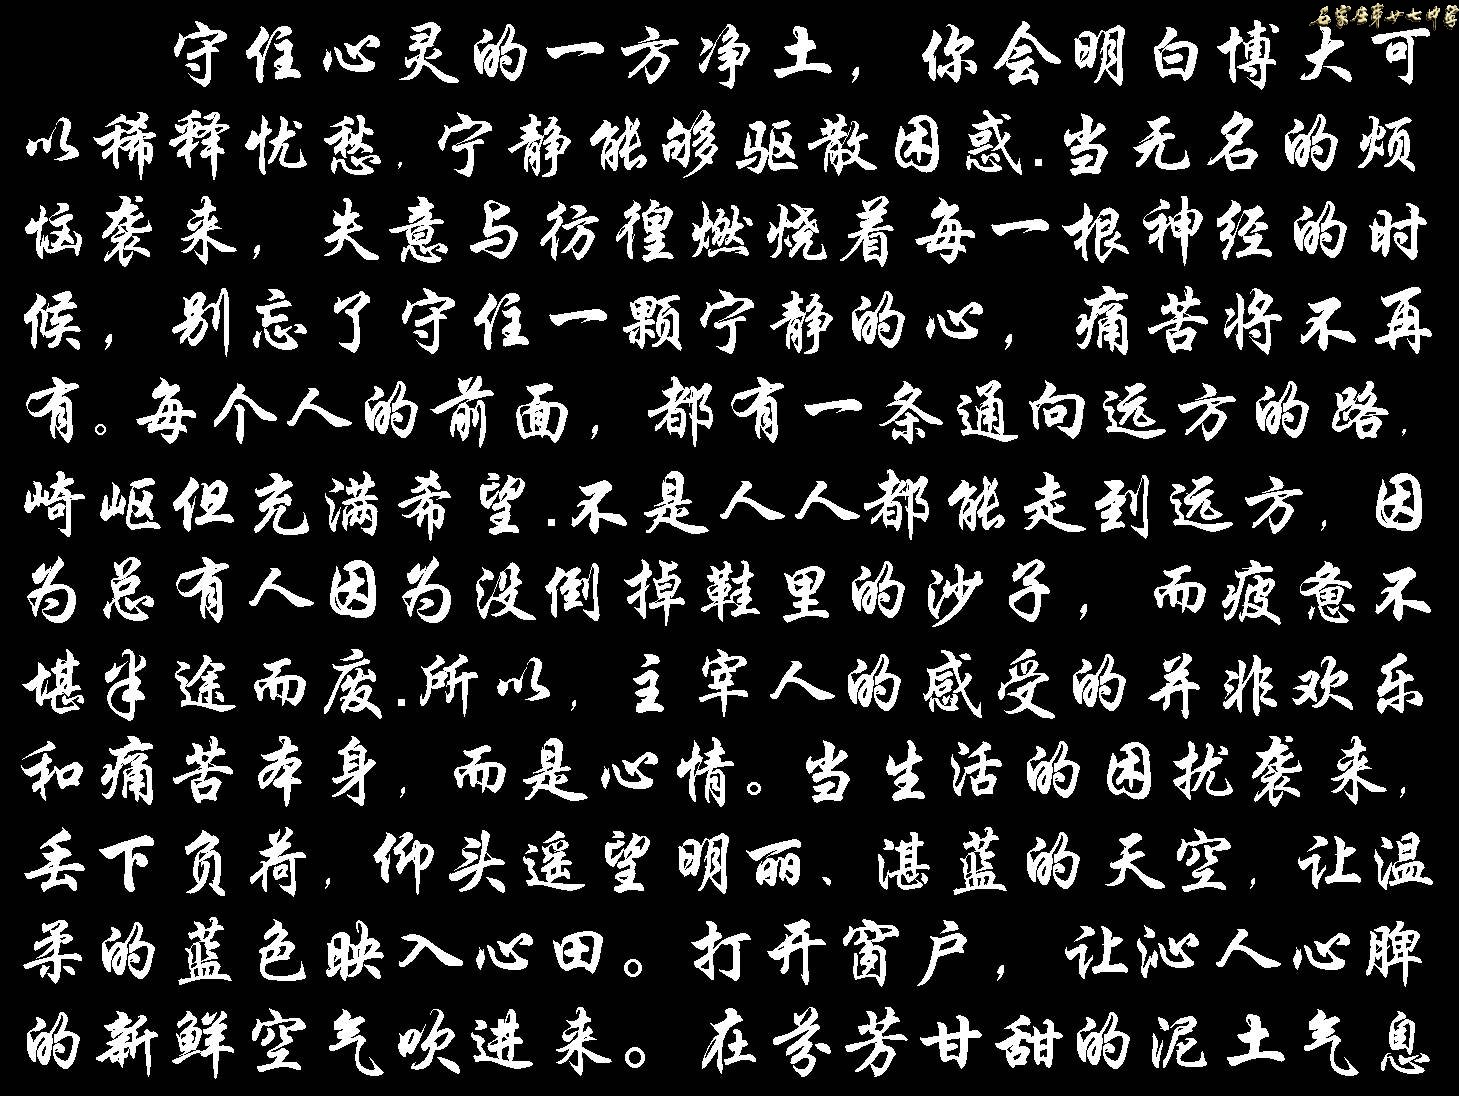 石家庄第廿七中学
守住心灵的一方净土，你会明白博大可
以稀释忧愁，宁静能够驱散困惑.当无名的烦
恼袭来，失意与彷徨燃烧着每一根神经的时
候，别忘了守住一颗宁静的心，痛苦将不再
有。每个人的前面，都有一条通向远方的路，
崎岖但充满希望.不是人人都能走到远方，因
为总有人因为没倒掉鞋里的沙子，而疲惫不
堪半途而废.所以，主宰人的感受的并非欢乐
和痛苦本身，而是心情。当生活的困扰袭来，
丢下负荷，仰头遥望明丽、湛蓝的天空，让温
柔的蓝色映入心田。打开窗户，让沁人心脾
的新鲜空气吹进来。在芬芳甘甜的泥土气息